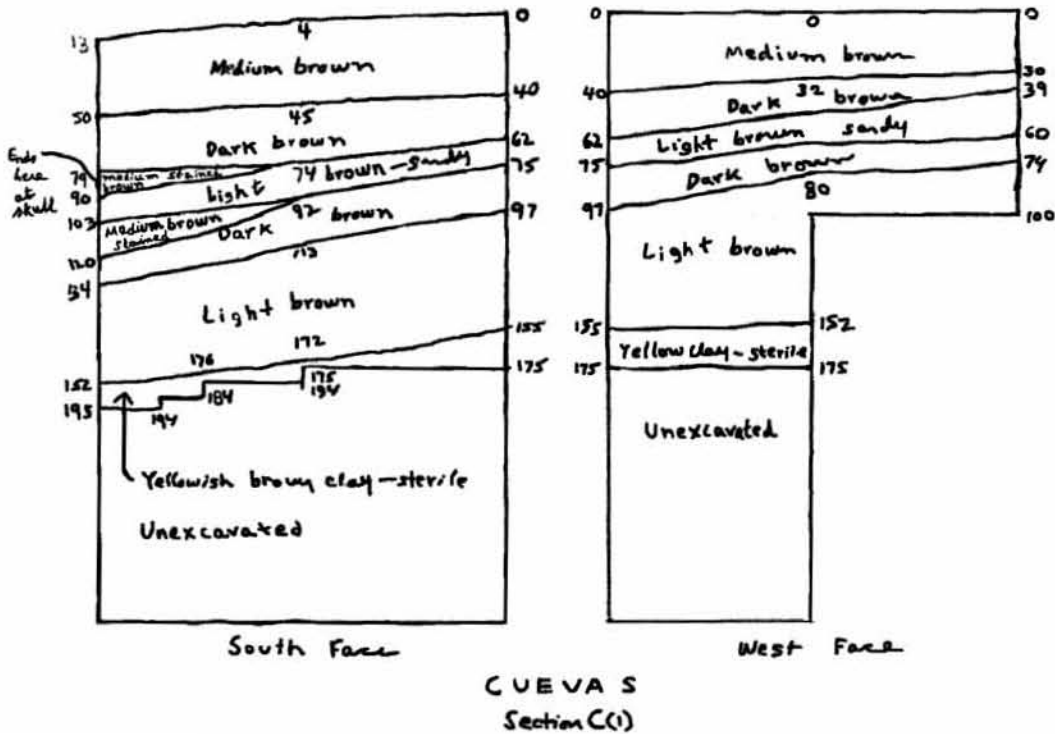 13
4
0
Medium brown
50
45
40
Dark brown
62
Ends
here
at
skull
79
medium stained
brown
90
Light
74 brown-sandy
75
103
Medium brown
stained
92
Dark
brown
97
120
113
134
Light brown
155
172
176
152
175
175
194
184
194
195
Yellowish brown clay-sterile
Unexcavated
South Face
0
0
0
Medium brown
30
40
32
39
Dark brown
62
Light brown sandy
60
75
Dark brown
74
80
97
100
Light brown
155
152
Yellow clay-sterile
175
175
Unexcavated
West Face
CUEVAS
Section C(1)